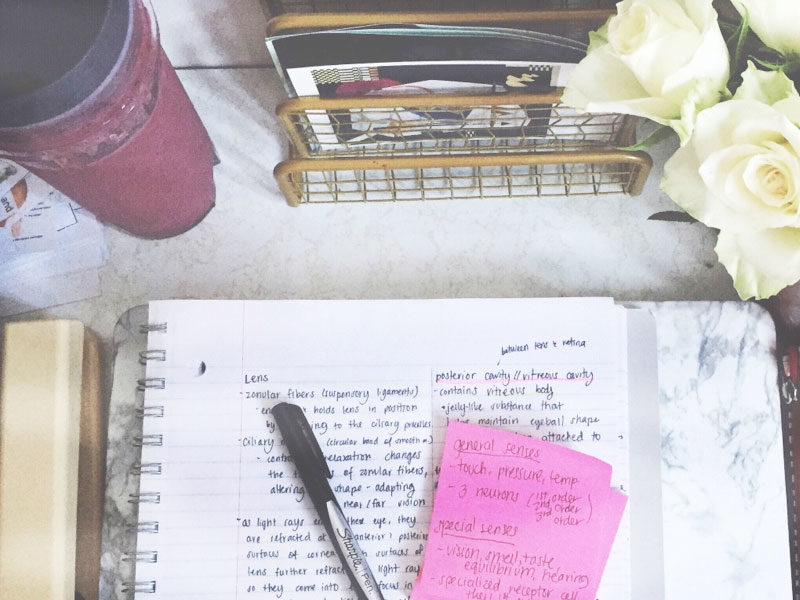 between lens & retina
Lens
- zonular fibers (suspensory ligaments)
holds lens in position
to the ciliary
- Ciliary (circular band of smooth m
- relaxation changes
the of zonular fibers,
altering shape - adapting
near/far vision
- as light rays eye, they
are refracted at anterior & posterior
surfaces of surfaces of
lens further light rays
so they come into focus in
posterior cavity // vitreous cavity
- contains vitreous body
• jelly-like substance that
maintain eyeball shape
attached to
general senses
- touch, pressure, temp
- 3 neurons (1st order
2nd order
3rd order)
special senses
- vision, smell, taste
equilibrium, hearing
- specialized receptor cell
Sharpie Pen
and